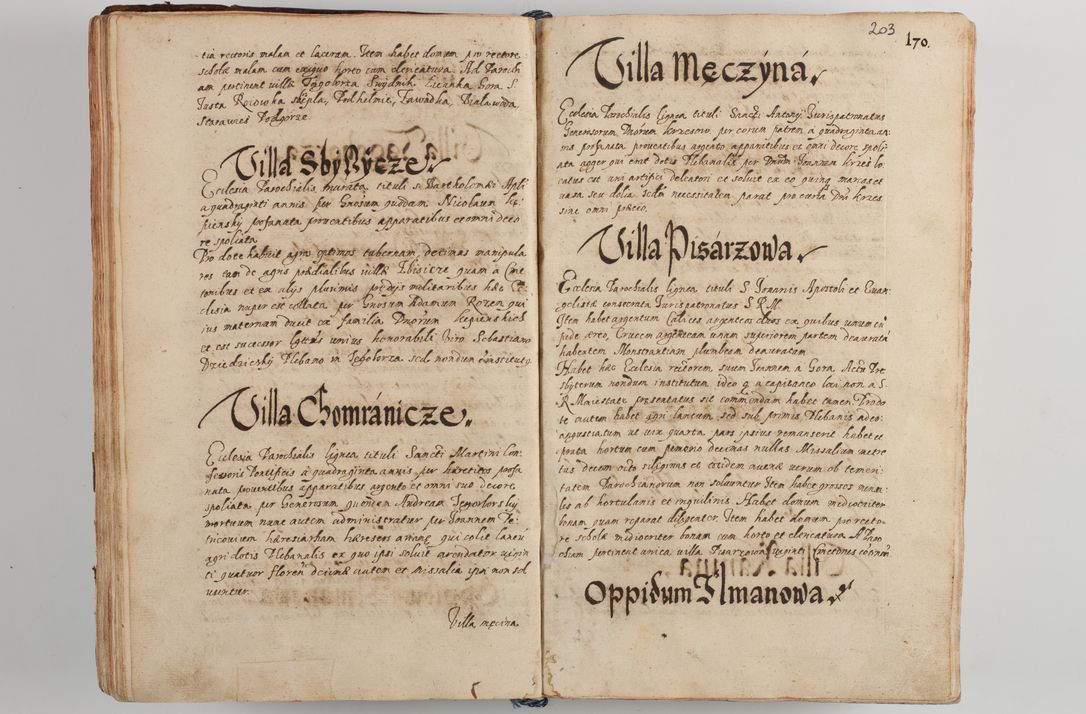 tia rectoris malam et laceram. Item habet domum pro rectore
scholæ malam cum exiguo horto cum clencatura. Ad Paroch
am pertinent villæ Tęgoborza Swydnik Licanka Gora S.
Justa Rojowka skrpla, Wolkhelmie, Zawadka, Białawoda
Starawies Podgorze
Villa Sbykÿcze
Ecclesia Parochialis, murata tituli S. Bartholomæi Apli
a quadraginti annis per Gnosum quddam Nicolaum Kę
pienskj profanata prouentibus apparatibus et omni deco
re spoliata
Pro dote habuit agros optimos tabernam, decimas manipula
res tum de agris prædialibus villæ Zbisicze quam a Cme
tonibus et ex alijs plurimis prædijs militaribus hæc Ec
clesia nuper est collata per Gnosum Adamum Rozen qui
ius maternum ducit ex familia Dnorum Kępienskich
et est successor Egius unius honorabili Viro Sebastiano
Dziedziczkj Plebano in Tęgoborza sed nondum constitutꝫ
Villa Chomránicze.
Ecclesia Parochialis lignea, tituli Sancti Martini Con
fessoris Pontificis a quadraginta annis per hæreticos profa
nata prouentibus apparatibus argento et omni suo decore
spoliata per Generosum quendam Andream Tęgoborskij
mortuum nunc autem administratur per Joannem Pe
tricouium hæresiarcham hæreseos arrianæ qui colit laneū
agri dotis Plebanalis ex quo ipsi soluit arendator vigin
ti quatuor floren decimæ autem et missalia ipsi non sol
uuntur.
Villa męcina
203
170.
Villa Męczÿná.
Ecclesia Parochialis lignea tituli Sancti Antonij Jurispatronatus
Generosorum Dnorum krzesow per eorum patrem a quadraginta an
nis profanata prouentibus argento apparatibus et omni decore spoli
ata ager qui erat dotis Plebanalis per Dnum Joannem krzesz lo
catus est uni artifici doleatori et soluit ex eo quinq marcas et
uasa seu dolia scilz necessitatem parat pro curia Dni krzes
sine omni præcio.
Villa Pisárzowa.
Ecclesia Parochialis lignea tituli S Joannis Apostoli et Euan
gelistæ consecrata Jurispatronatus S R M.
Item habet argentum Calices argenteos duos ex quibus unum cū
pede æreo, Crucem argenteam unam superiorem partem deauratā
habentem Monstrantiam plumbeam deauratam
Habet hæc Ecclesia rectorem suum Joannem a Gora, Actu Pre
sbyterum nondum institutum ideo q a capitaneo loci non a S.
R Maiestate præsentatus sit commendam habet tamen Pro do
te autem habet agri laneum sed sub primis Plebanis adeo
angustiatum ut vix quarta pars ipsius remanserit habet et
porta hortum cum pomerio decimas nullas Missalium metre
tas decem octo siliginis et totidem auenæ uerum ob temeri
tatem Parochianorum non soluuntur Item habet grossos mensa
les ab hortulanis et inquilinis Habet domum mediocriter
bonam quam reparat diligenter. Item habet domum pro recto
re scholæ mediocriter bonam cum horto et clencatura. A Paro
chiam pertinent unica villa Pisarzowa
Oppidum Ilmanowa.